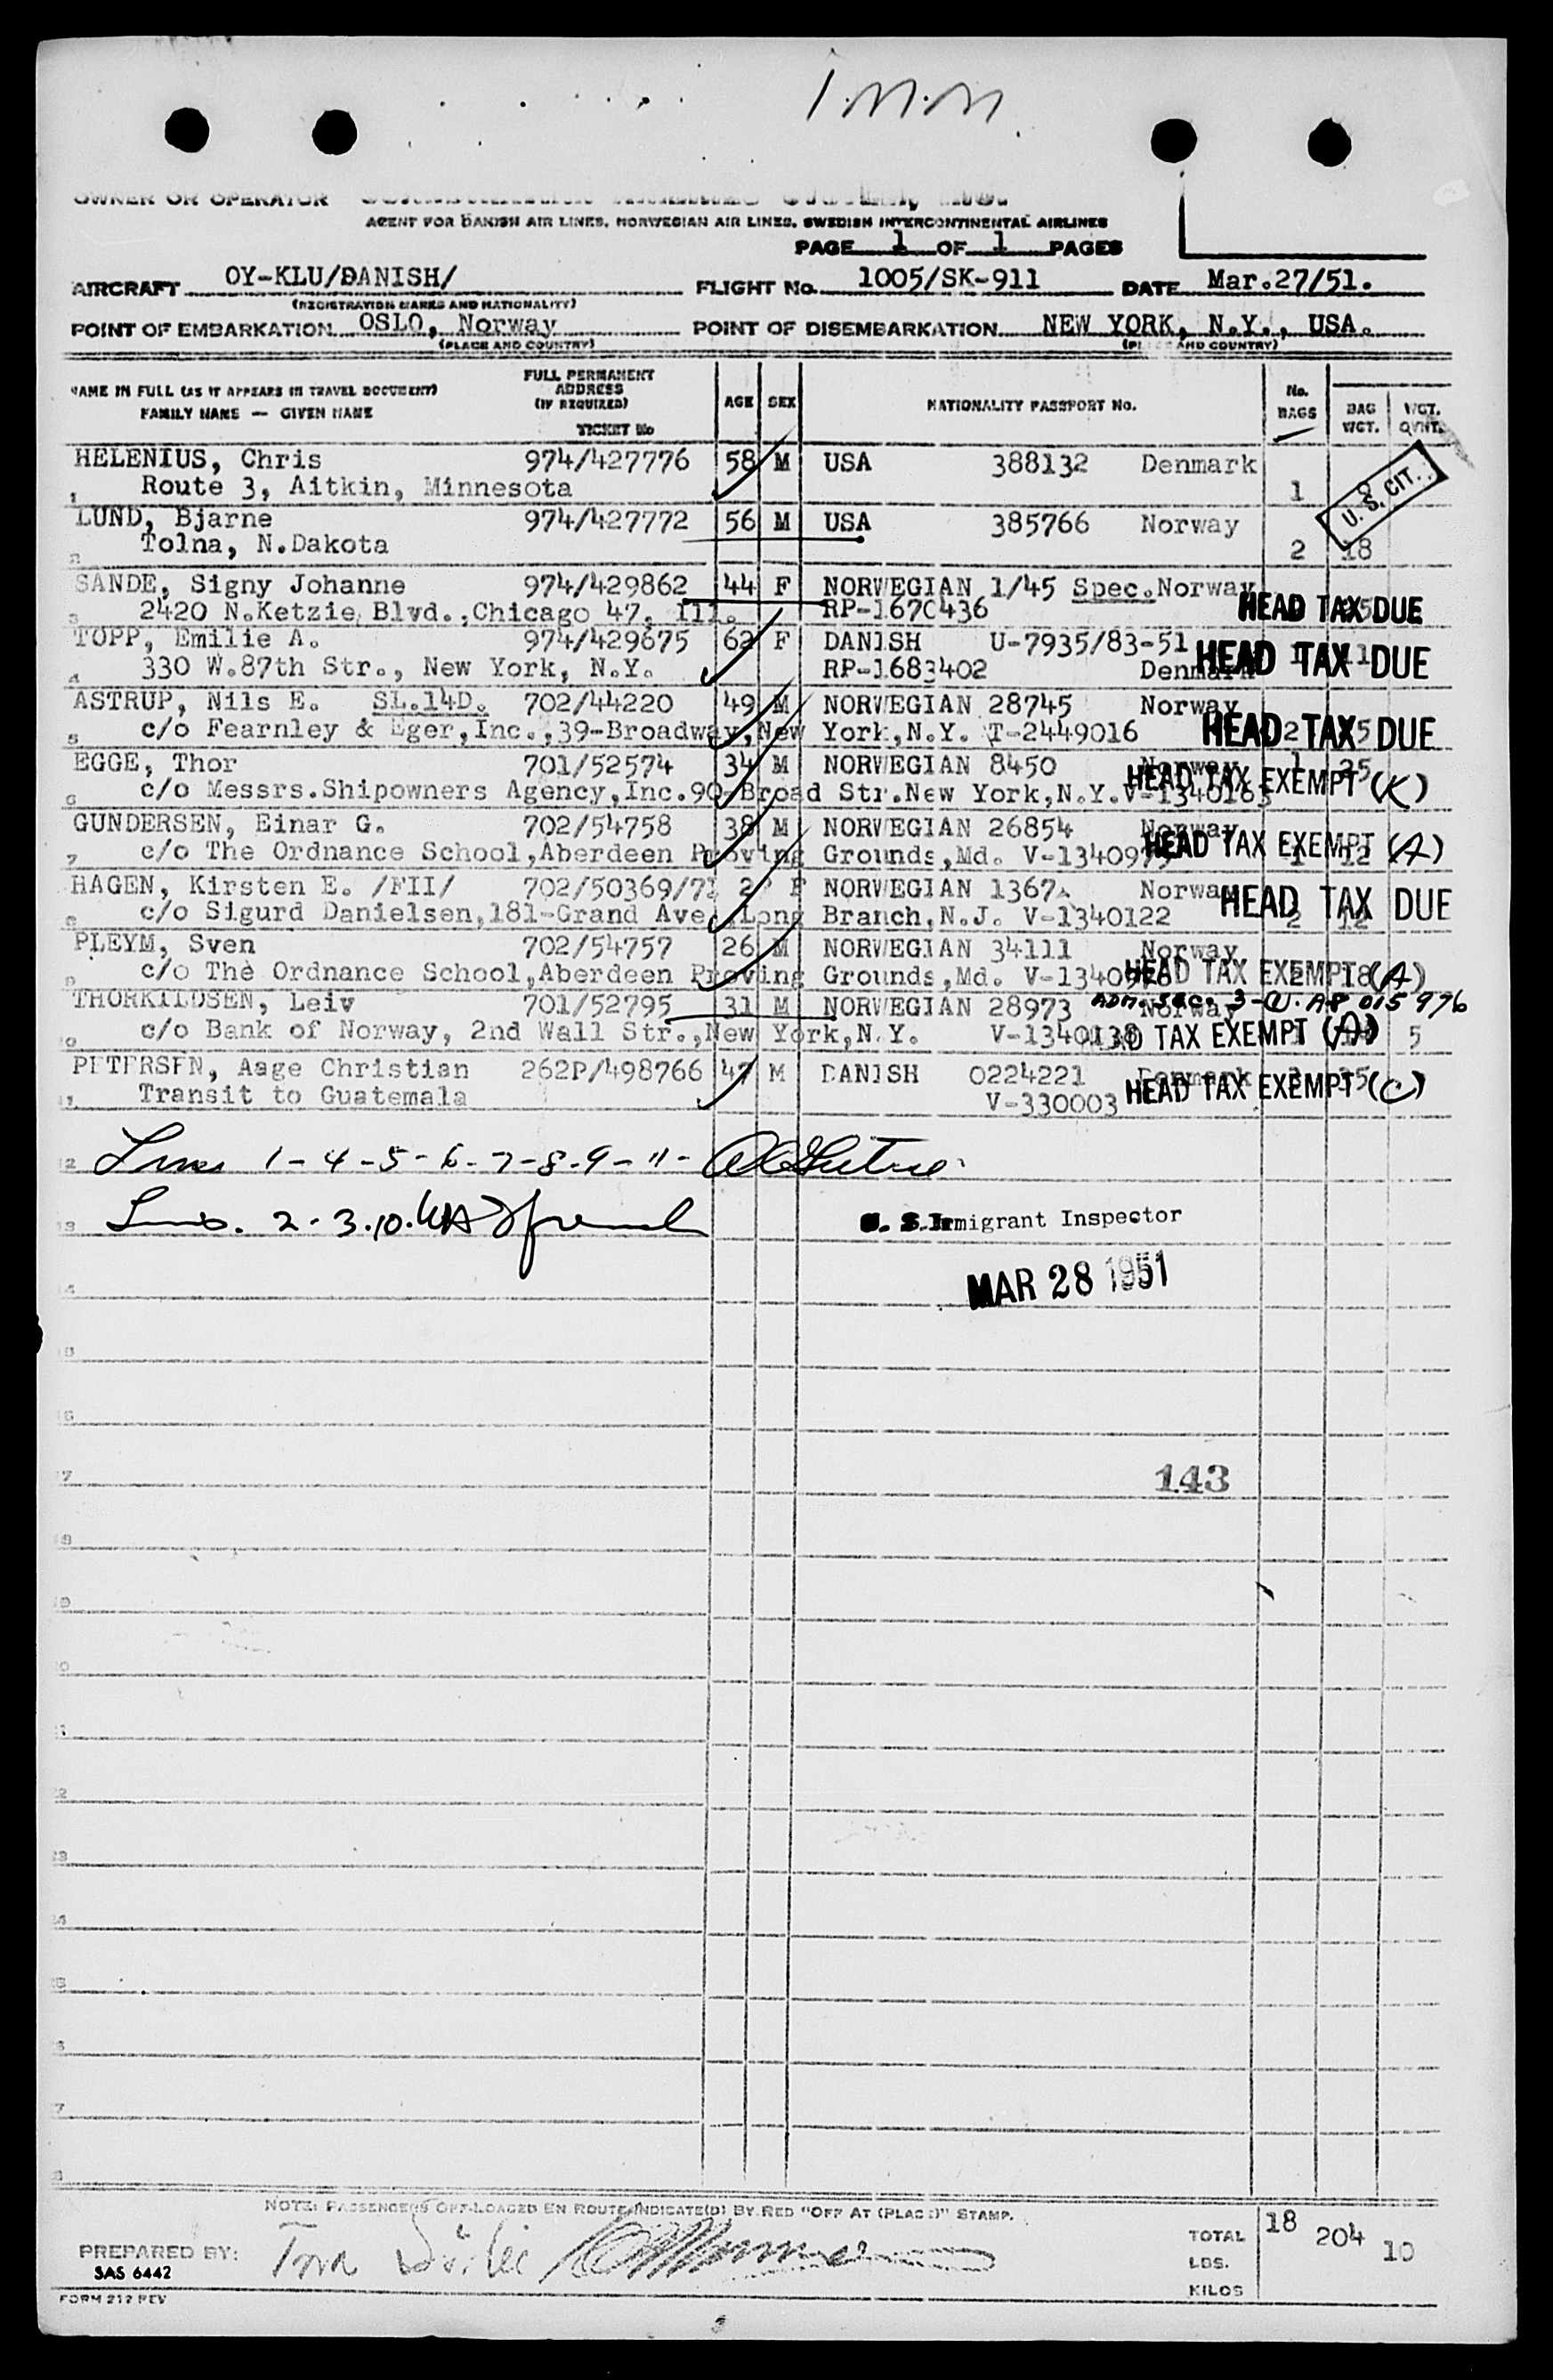 OWNER OR OPERATOR
AGENT FOR DANISH AIR LINES, NORWEGIAN AIR LINES, SWEDISH INTERCONTINENTAL AIRLINES
PAGE 1 OF 1 PAGES
AIRCRAFT OY-KLU/DANISH/ FLIGHT No. 1005/SK-911 DATE Mar.27/51.
(REGISTRATION MARKS AND NATIONALITY)
POINT OF EMBARKATION OSLO, Norway POINT OF DISEMBARKATION NEW YORK, N.Y., USA.
(PLACE AND COUNTRY) (PLACE AND COUNTRY)
NAME IN FULL (AS IT APPEARS IN TRAVEL DOCUMENT)
FAMILY NAME — GIVEN NAME
FULL PERMANENT
ADDRESS
(IF REQUIRED)
TICKET No
AGE SEX NATIONALITY PASSPORT No.
No. BAGS
BAG WGT.
WGT.
HELENIUS, Chris 974/427776 58 M USA 388132 Denmark
1 Route 3, Aitkin, Minnesota 1
U. S. CIT.
LUND, Bjarne 974/427772 56 M USA 385766 Norway
2 Tolna, N.Dakota 2 18
SANDE, Signy Johanne 974/429862 44 F NORWEGIAN 1/45 Spec.Norway
3 2420 N.Ketzie Blvd.,Chicago 47, Ill. RP-1670436 HEAD TAX DUE
TOPP, Emilie A. 974/429675 62 F DANISH U-7935/83-51
4 330 W.87th Str., New York, N.Y. RP-1683402 Denmark HEAD TAX DUE
ASTRUP, Nils E. SL.14D. 702/44220 49 M NORWEGIAN 28745 Norway
5 c/o Fearnley & Eger,Inc.,39-Broadway,New York,N.Y. T-2449016 HEAD TAX DUE
EGGE, Thor 701/52574 34 M NORWEGIAN 8450 Norway
6 c/o Messrs.Shipowners Agency,Inc.90-Broad Str.New York,N.Y.V-1340163 HEAD TAX EXEMPT (K)
GUNDERSEN, Einar G. 702/54758 38 M NORWEGIAN 26854 Norway
7 c/o The Ordnance School,Aberdeen Proving Grounds,Md. HEAD TAX EXEMPT (A)
HAGEN, Kirsten E. /FII/ 702/50369/71 F NORWEGIAN Norway
8 c/o Sigurd Danielsen,181-Grand Ave.,Long Branch,N.J. V-1340122 2 12 HEAD TAX DUE
PLEYM, Sven 702/54757 26 M NORWEGIAN 34111 Norway
9 c/o The Ordnance School,Aberdeen Proving Grounds,Md. 2 18 HEAD TAX EXEMPT (A)
THORKILDSEN, Leiv 701/52795 31 M NORWEGIAN 28973 Norway ADM. SEC. 3-(1). A8 015 976
10 c/o Bank of Norway, 2nd Wall Str.,New York,N.Y. V-1340138 HEAD TAX EXEMPT (A) 5
PETERSEN, Aage Christian 262P/498766 47 M DANISH 0224221 Denmark
11 Transit to Guatemala V-330003 HEAD TAX EXEMPT (C)
12 Lines 1-4-5-6-7-8-9-11-
13 Lines. 2-3.10.
U. S. Immigrant Inspector
MAR 28 1951
143
NOTE: PASSENGERS OFF-LOADED EN ROUTE INDICATE(D) BY RED "OFF AT (PLACE)" STAMP.
PREPARED BY:
SAS 6442
TOTAL 18 204 10
LBS.
KILOS
FORM 212 REV